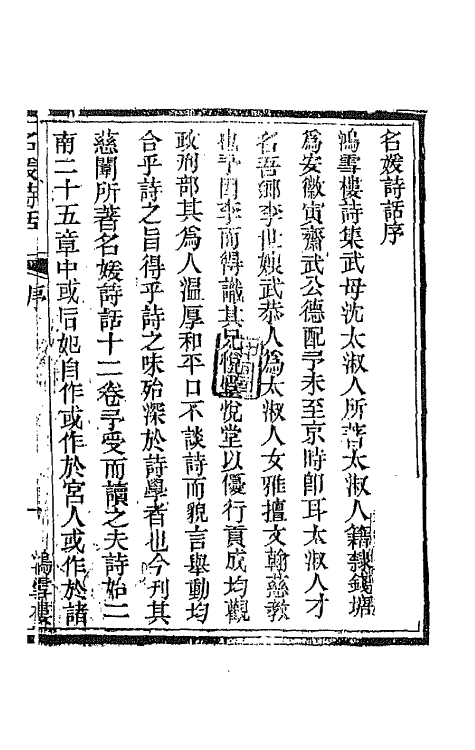 名媛詩話序
鴻雪樓詩集武母沈太淑人所著太淑人籍隸錢塘
爲安徽寅齋武公德配予未至京時卽耳太淑人才
名吾鄉李世嫂武恭人爲太淑人女雅擅文翰慈教
也予因李而得識其兄悅堂悅堂以優行貢成均觀
政刑部其爲人溫厚和平口不談詩而貌言舉動均
合乎詩之旨得乎詩之味殆深於詩學者也今刊其
慈闈所著名媛詩話十二卷予受而讀之夫詩始二
南二十五章中或后妃自作或作於宮人或作於諸
名媛詩話
序
一
鴻雪樓